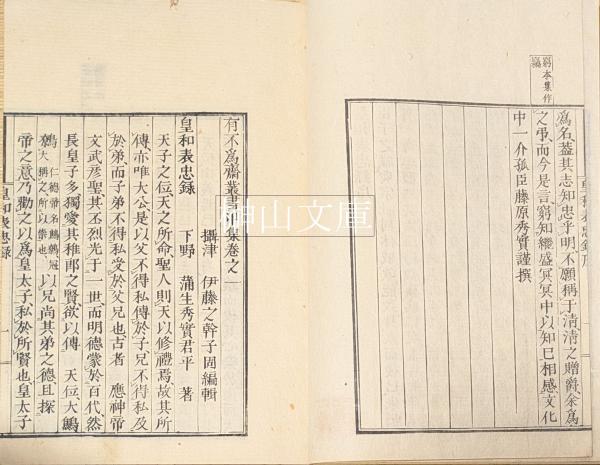 爲名蓋其志知忠乎明不願稱于清清之贈爵余爲
之弔而今是言窮知繼盛冥冥中以知已相感文化
中一介孤臣藤原秀實謹撰
有不爲齋叢書 集卷之一
攝津 伊藤之幹子固編輯
皇和表忠録
下野 蒲生秀實君平 著
天子之位天之所命聖人則天以修禮焉故其所
傳亦唯大公是以父不得私傳於子兄不得私及
於弟而子弟不得私受於父兄也古者 應神帝
文武彦聖其丕烈光于一世而明德蒙於百代然
長皇子多獨愛其稚郎之賢欲以傳 天位大鷦
鷯 仁德帝名鷦鷯冠大稱之所以崇也 以兄尚其弟之德且探
帝之意乃勸之以爲皇太子私於所賢也皇太子
皇和表忠録 一
榊山文庫